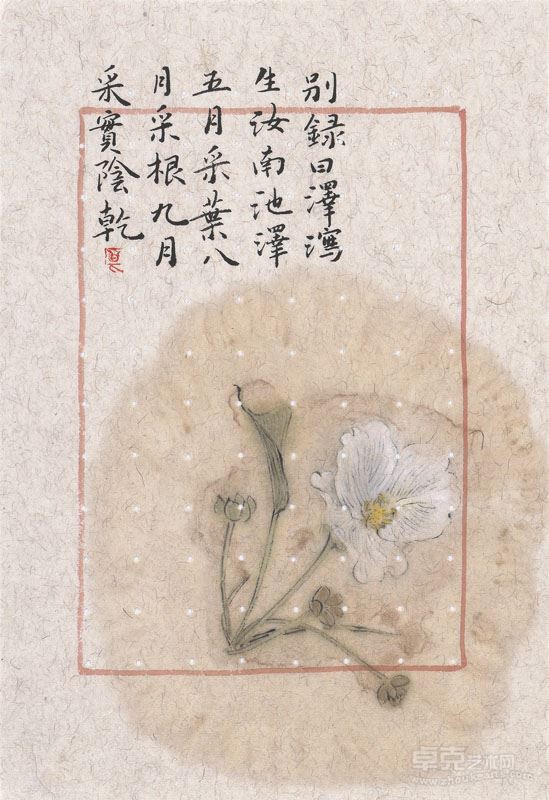 别録曰澤瀉
生汝南池澤
五月采葉八
月采根九月
采實陰乾
卓克艺术网
www.zhuokearts.com